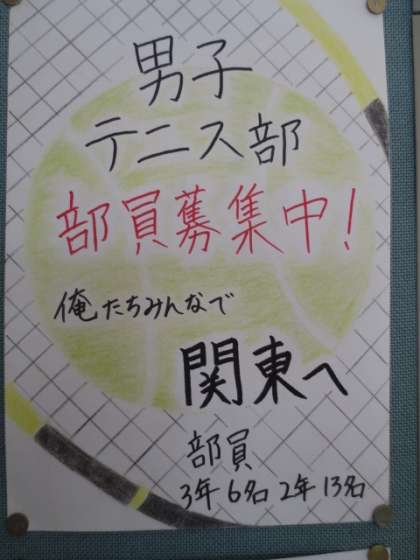 男子
テニス部
部員募集中！
俺たちみんなで
関東へ
部員
3年6名 2年13名